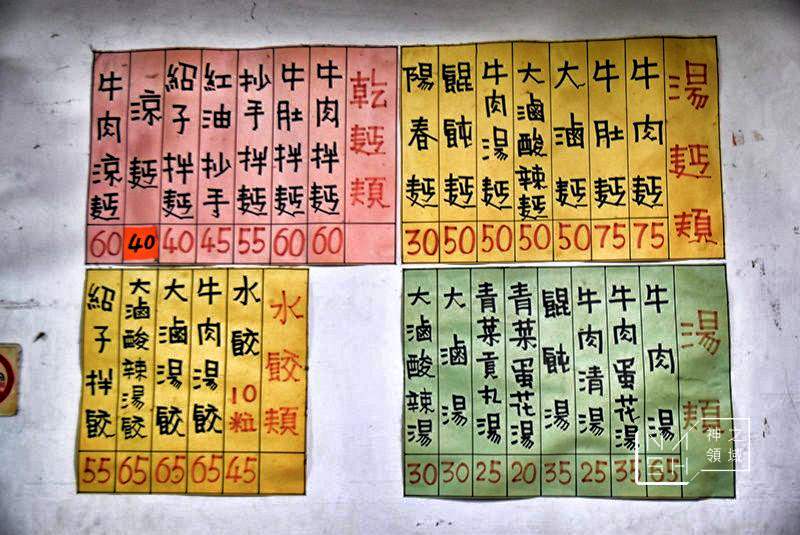 乾麵類
牛肉拌麵 60
牛肚拌麵 60
抄手拌麵 55
紅油抄手 45
紹子拌麵 40
涼麵 40
牛肉涼麵 60
湯麵類
牛肉麵 75
牛肚麵 75
大滷麵 50
大滷酸辣麵 50
牛肉湯麵 50
餛飩麵 50
陽春麵 30
水餃類
水餃10粒 45
牛肉湯餃 65
大滷湯餃 65
大滷酸辣湯餃 65
紹子拌餃 55
湯類
牛肉湯
牛肉蛋花湯 35
牛肉清湯 25
餛飩湯 35
青菜蛋花湯 20
青菜貢丸湯 25
大滷湯 30
大滷酸辣湯 30
神之領域